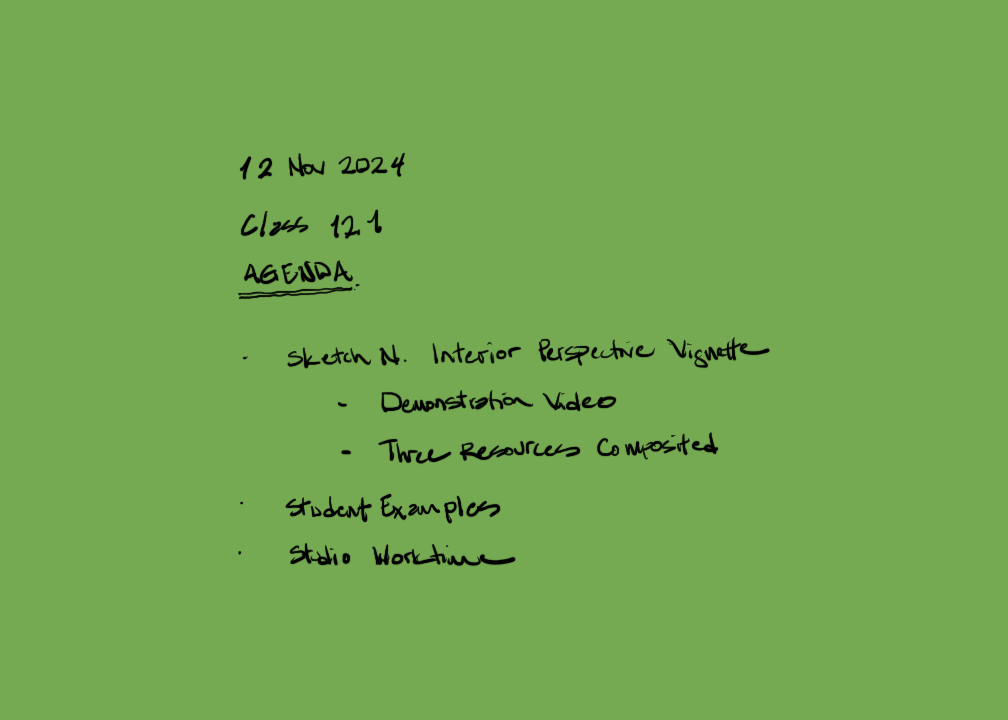 12 Nov 2024
Class 12.1
AGENDA.
· Sketch N. Interior Perspective Vignette
- Demonstration Video
- Three Resources Composited
· Student Examples
· Studio Worktime